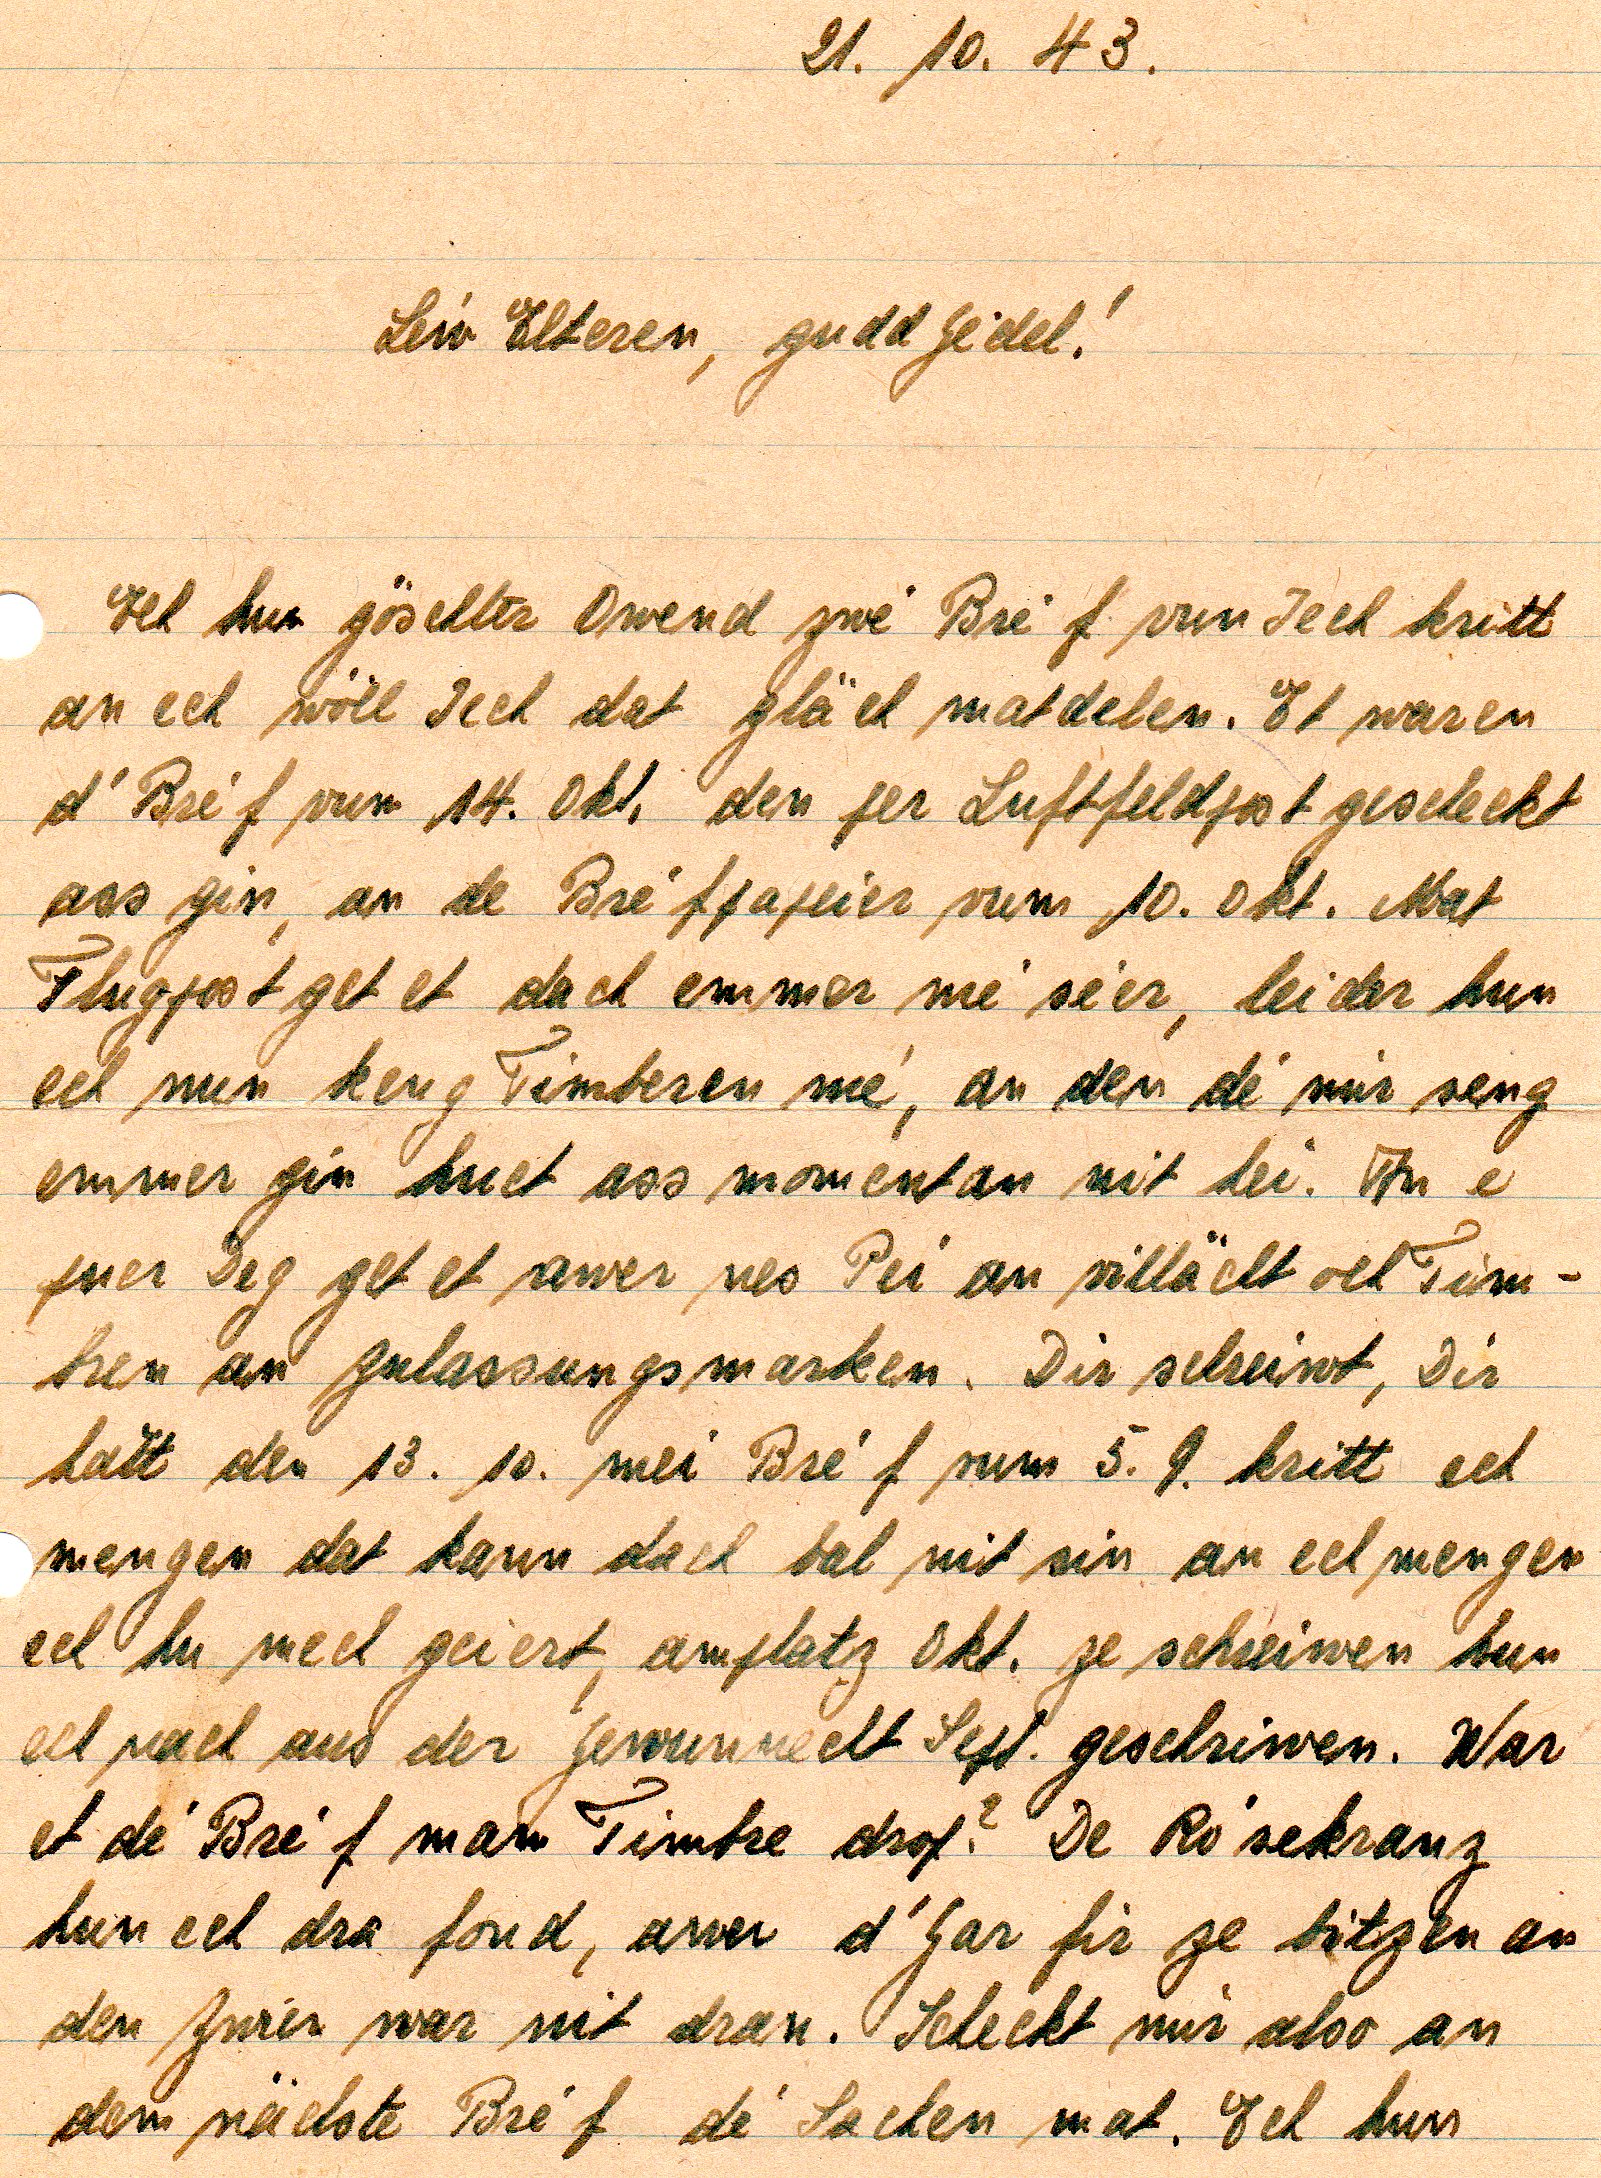 21. 10. 43.
Leiw Elteren, gudd Geidel!
Ech hun göschter Owend zwé Bréf vun Iech kritt
an ech wöll Iech dat gläch matdelen. Et waren
d'Bréf vum 14. Okt. den per Luftfeldpost gescheckt
ass gin, an de Bréfpapeier vum 10. Okt. Mat
Flugpost get et dach emmer mé séier, leider hun
ech nun keng Timberen mé, an den dé mir seng
emmer gin huet ass momentan nit hei. An e
puer Deg get et awer nes Pei an villächt och Tim-
bren an Zulassungsmarken. Dir schreiwt, Dir
hätt den 13. 10. mei Bréf vum 5. 9. kritt ech
mengen dat kann dach bal nit sin an ech mengen
ech hu mech geiert, amplatz Okt. ze schreiwen hun
ech nach aus der Gewunnecht Sept. geschriwen. War
et dé Bréf mam Timbre drop? De Rósekranz
hun ech dra fond, awer d'Gar fir ze bitzen an
den Zwier war nit dran. Scheckt mir also an
dem nächste Bréf dé Sachen mat. Ech hun